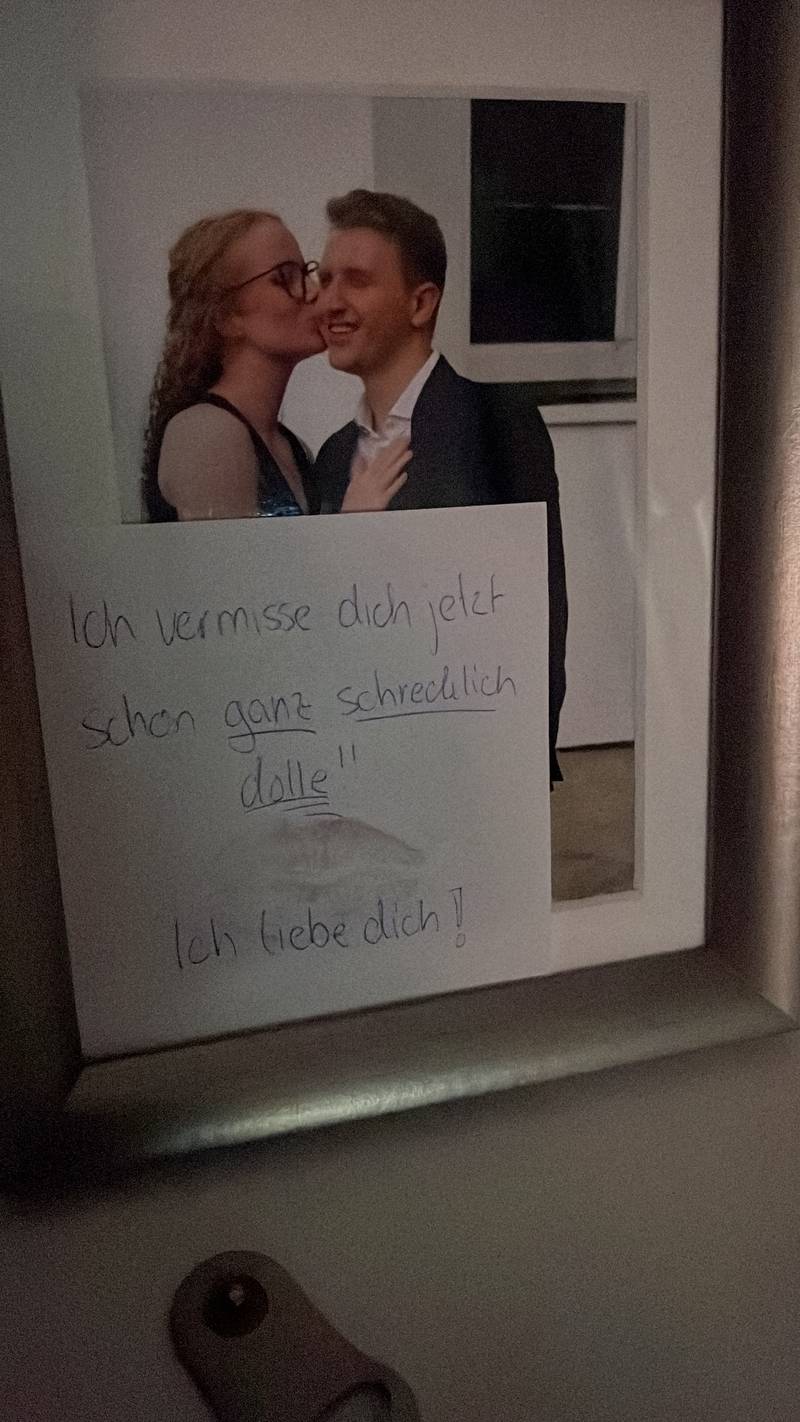 Ich vermisse dich jetzt
schon ganz schrecklich
dolle!!
Ich liebe dich!